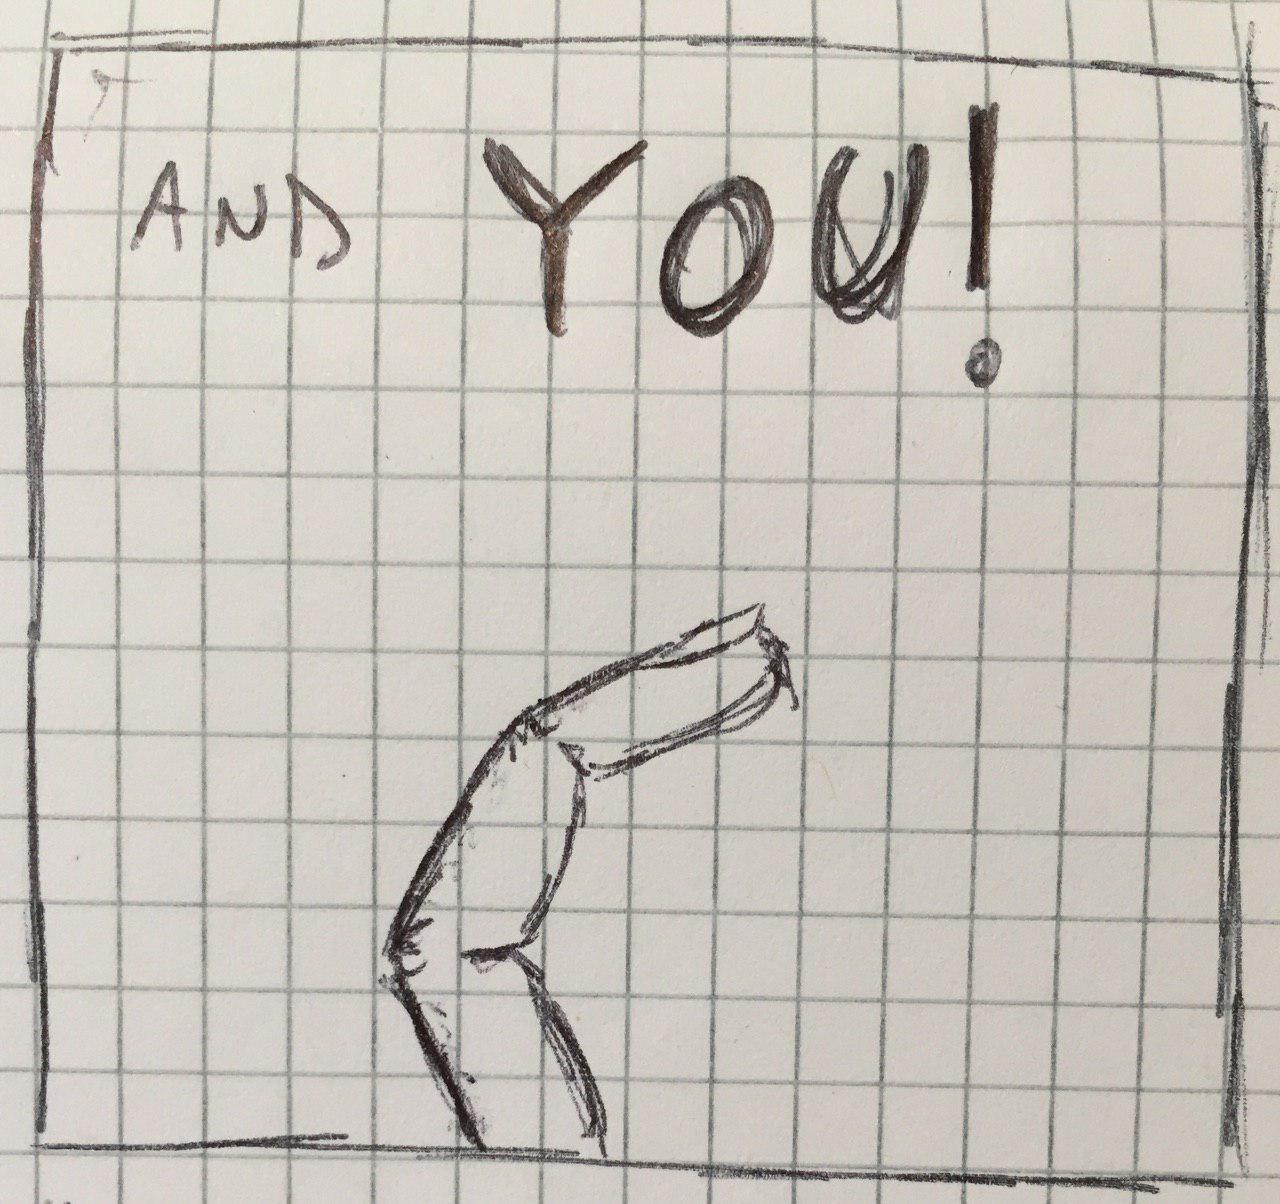 AND YOU!